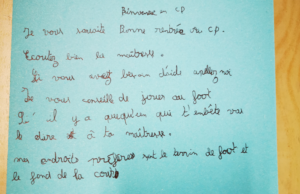 Bienvenue en CP
Je vous souaite Bonne rentrée au CP.
Ecoutez bien la maîtresse.
Si vous avez besoin d'aide
Je vous conseille de jouer au foot
il y a quelqu'un qui t'embête vas
le dire à ta maîtresse.
mes endroits préférés sont le terrain de foot et
le fond de la cour